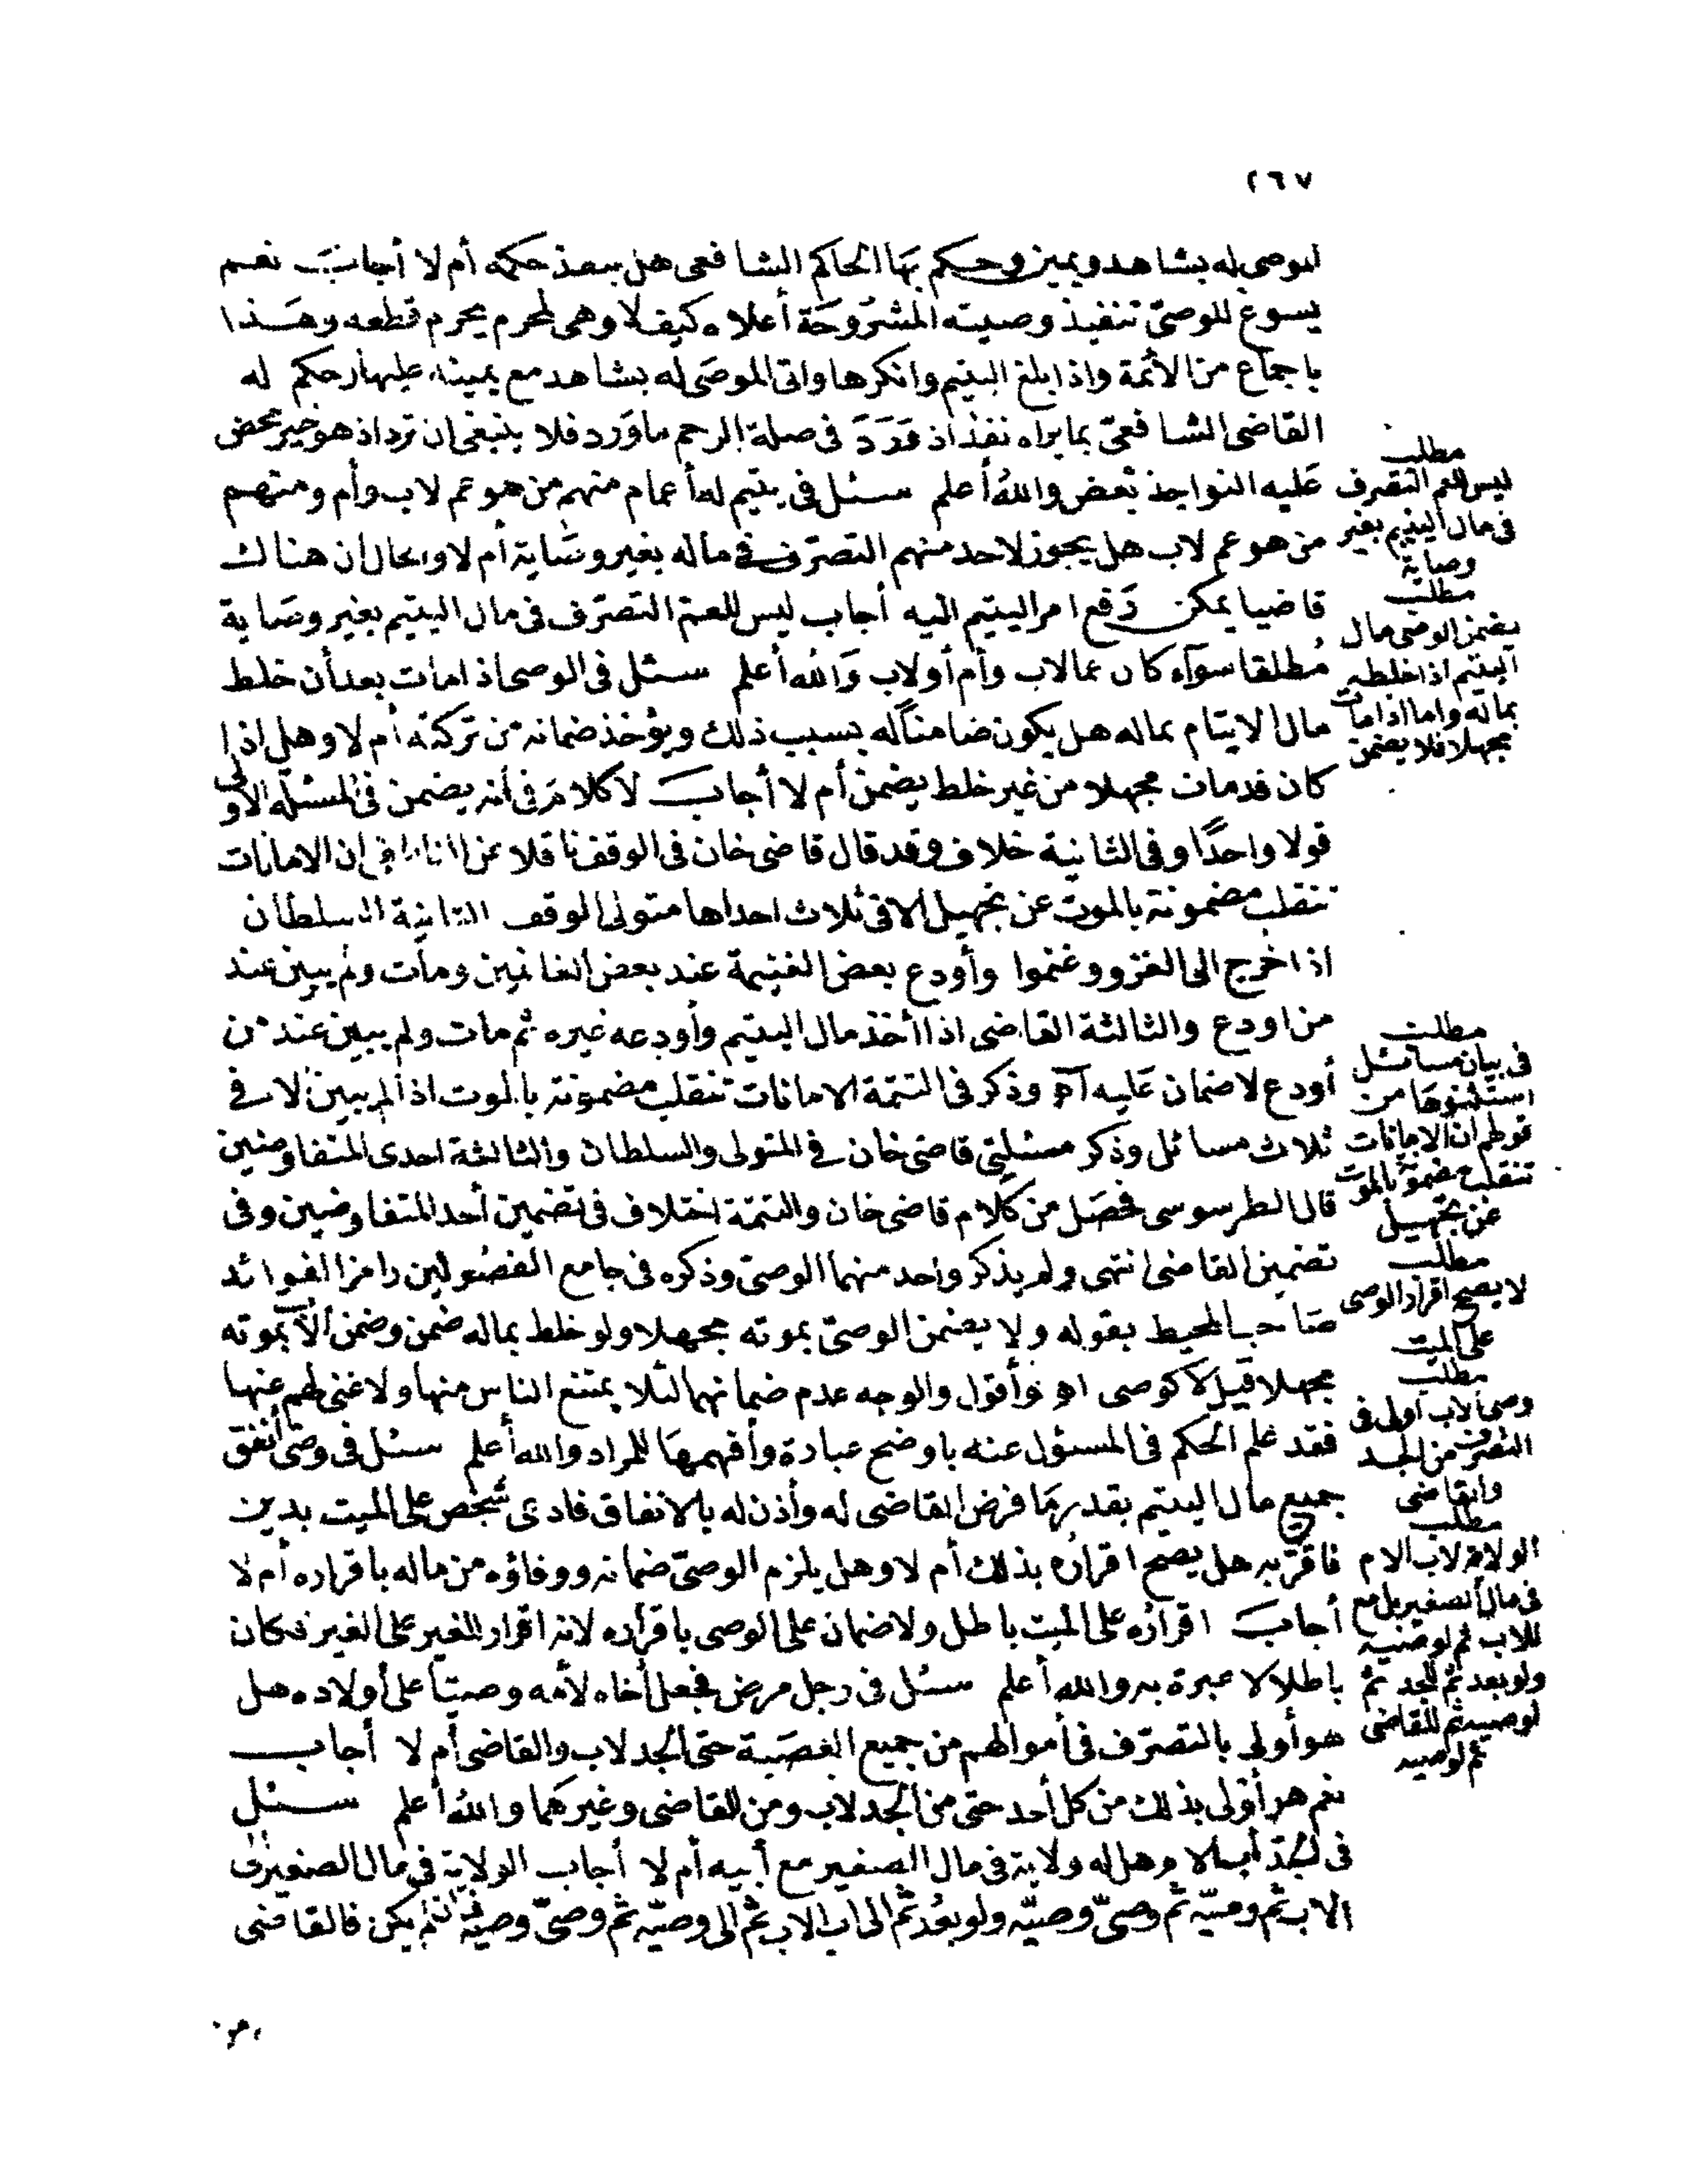 ٢٦٧
الموصى له بشاهد ويمين وحكم بها الحاكم الشافعى هل ينفذ حكمه أم لا أجاب نعم
يسوغ للوصىّ تنفيذ وصيته المشروحة أعلاه كيف لا وهى لمحرم يحرم قطعه وهذا
باجماع من الأئمة واذا بلغ اليتيم وانكرها واتى الموصى له بشاهد مع يمينه عليها وحكم له
القاضى الشافعىّ بما يراه نفذ اذ قد ورد فى صلة الرحم ما ورد فلا ينبغى ان ترد اذ هو خير محض
عليه النواجذ تعض والله أعلم سئل فى يتيم له أعمام منهم من هو عم لاب وأم ومنهم
من هو عم لاب هل يجوز لاحد منهم التصرّف فى ماله بغير وصاية أم لا والحال ان هناك
قاضيا يمكن دفع امر اليتيم اليه أجاب ليس للعم التصرّف فى مال اليتيم بغير وصاية
مطلقا سوآء كان عما لاب وأم أو لاب والله أعلم سئل فى الوصى اذا مات بعد أن خلط
مال الايتام بماله هل يكون ضامنا له بسبب ذلك ويؤخذ ضمانه من تركته أم لا وهل اذا
كان قد مات مجهلا من غير خلط يضمن أم لا أجاب لا كلام فى أنه يضمن فى المسئلة الاولى
قولا واحدًا وفى الثانية خلاف وقد قال قاضى خان فى الوقف ناقلا عن الناطفى ان الامانات
تنقلب مضمونة بالموت عن تجهيل الا فى ثلاث احداها متولى الوقف الثانية السلطان
اذا خرج الى الغزو وغنموا وأودع بعض الغنيمة عند بعض الغانمين ومات ولم يبين عند
من اودع والثالثة القاضى اذا أخذ مال اليتيم وأودعه غيره ثم مات ولم يبين عند من
أودع لا ضمان عليه اه وذكر فى التتمة الامانات تنقلب مضمونة بالموت اذا لم يبين الا فى
ثلاث مسائل وذكر مسئلتى قاضى خان فى المتولى والسلطان والثالثة احدى المتفاوضين
قال الطرسوسى فحصل من كلام قاضى خان والتتمة اختلاف فى تضمين أحد المتفاوضين وفى
تضمين القاضى انتهى ولم يذكر واحد منهما الوصىّ وذكره فى جامع الفصولين رامزا لفوائد
صاحب المحيط بقوله ولا يضمن الوصىّ بموته مجهلا ولو خلط بماله ضمن وضمن الأب بموته
مجهلا قيل لا كوصى اه وأقول والوجه عدم ضمانهما لئلا يمتنع الناس منها ولا غنى لهم عنها
فقد علم الحكم فى المسئول عنه باوضح عبارة وأفهمها للمراد والله أعلم سئل فى وصىّ أنفق
جميع مال اليتيم بقدر ما فرض القاضى له وأذن له بالانفاق فادعى شخص على الميت بدين
فاقرّ به هل يصح اقراره بذلك أم لا وهل يلزم الوصىّ ضمانه ووفاؤه من ماله باقراره أم لا
أجاب اقراره على الميت باطل ولا ضمان على الوصى باقراره لانه اقرار للغير على الغير فكان
باطلا لا عبرة به والله أعلم سئل فى رجل مرض فجعل أخاه لأمه وصيّا على أولاده هل
هو أولى بالتصرّف فى أموالهم من جميع العصبة حتى الجد لاب والقاضى أم لا أجاب
نعم هو أولى بذلك من كل أحد حتى من الجد لاب ومن القاضى وغيرهما والله أعلم سئل
فى الجدّ أب الام هل له ولاية فى مال الصغير مع أبيه أم لا أجاب الولاية فى مال الصغير الى
الاب ثم وصيّه ثم وصىّ وصيّه ولو بعُد ثم الى اب الاب ثم الى وصيّه ثم وصىّ وصيّه فان لم يكن فالقاضى
مطلب
ليس للعم التصرف
فى مال اليتيم بغير
وصاية
مطلب
يضمن الوصى مال
اليتيم اذا خلطه
بماله واما اذا مات
مجهلا فلا يضمن
مطلب
فى بيان مسائل
استثنوها من
قولهم ان الامانات
تنقلب مضمونة بالموت
عن تجهيل
مطلب
لا يصح اقرار الوصى
على الميت
مطلب
وصى الاب اولى فى
التصرف من الجد
والقاضى
مطلب
الولاية لاب الام
فى مال الصغير بل مع
للاب ثم لوصيه
ولو بعد ثم للجد ثم
لوصيه ثم للقاضى
ثم لوصيه